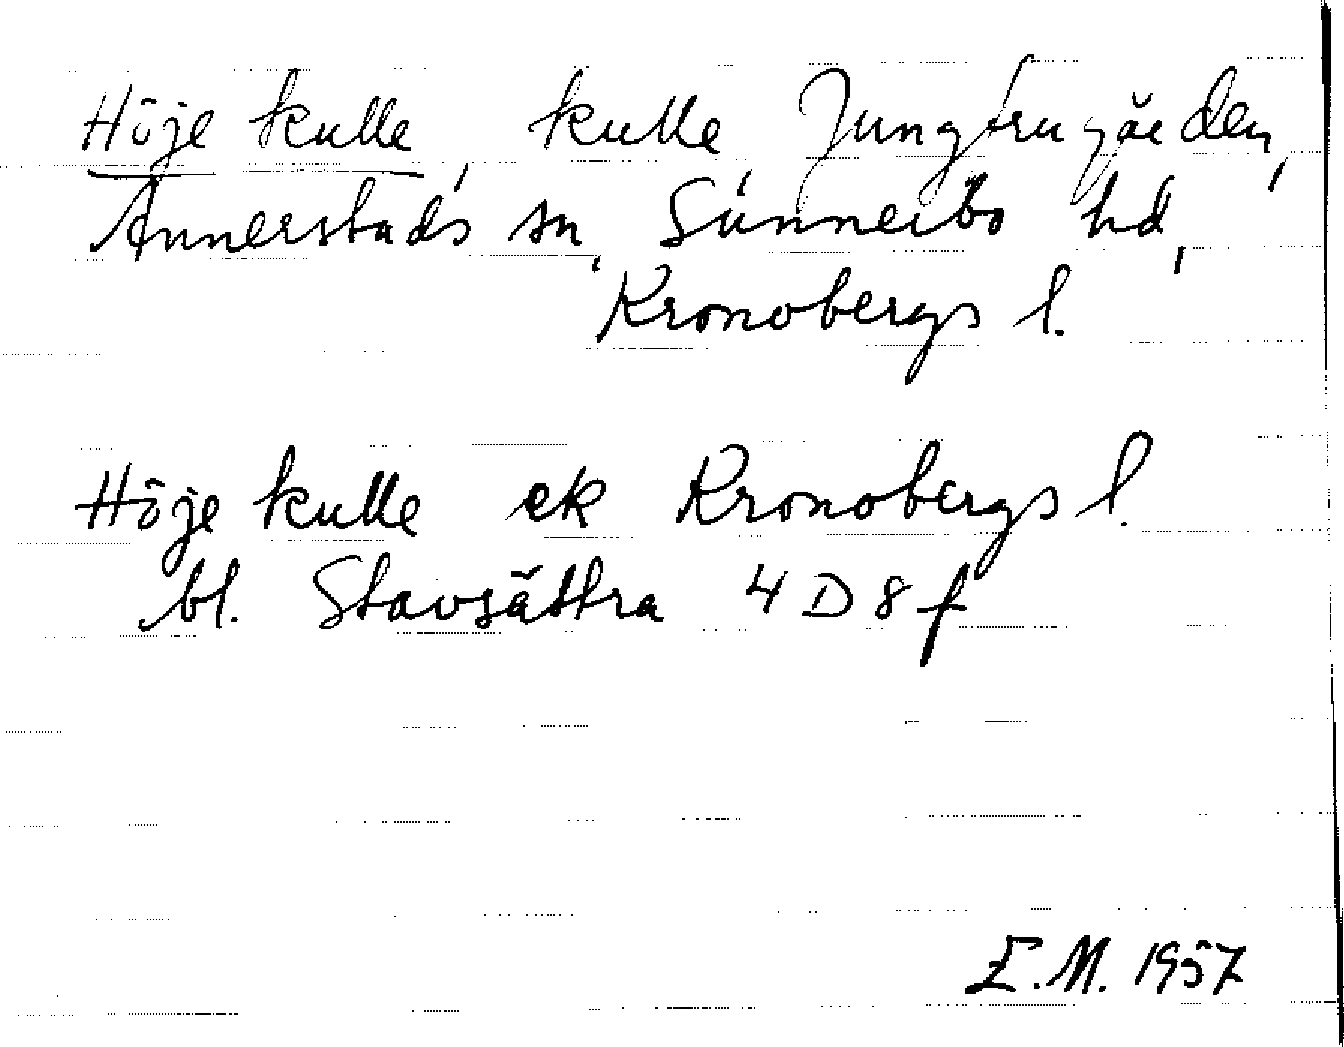 Höje kulle, kulle, Jungfrugården,
Annerstads sn, Sunnerbo hd,
Kronobergs l.
Höje kulle ek Kronobergs l.
bl. Stavsättra 4 D 8 f
E.M. 1957